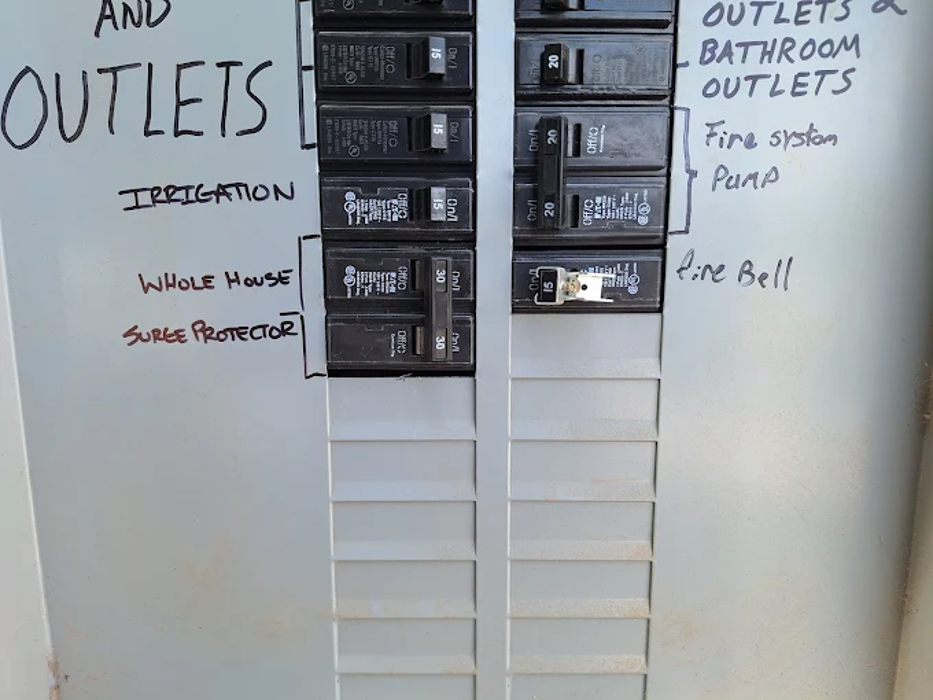 AND
OUTLETS
IRRIGATION
WHOLE HOUSE
SURGE PROTECTOR
On/I
15
Off/O
On/I
15
Off/O
On/I
15
Off/O
On/I
30
Off/O
On/I
30
Off/O
OUTLETS &
BATHROOM
OUTLETS
Fire system
Pump
fire Bell
20
On/I
20
Off/O
On/I
20
Off/O
On/I
15